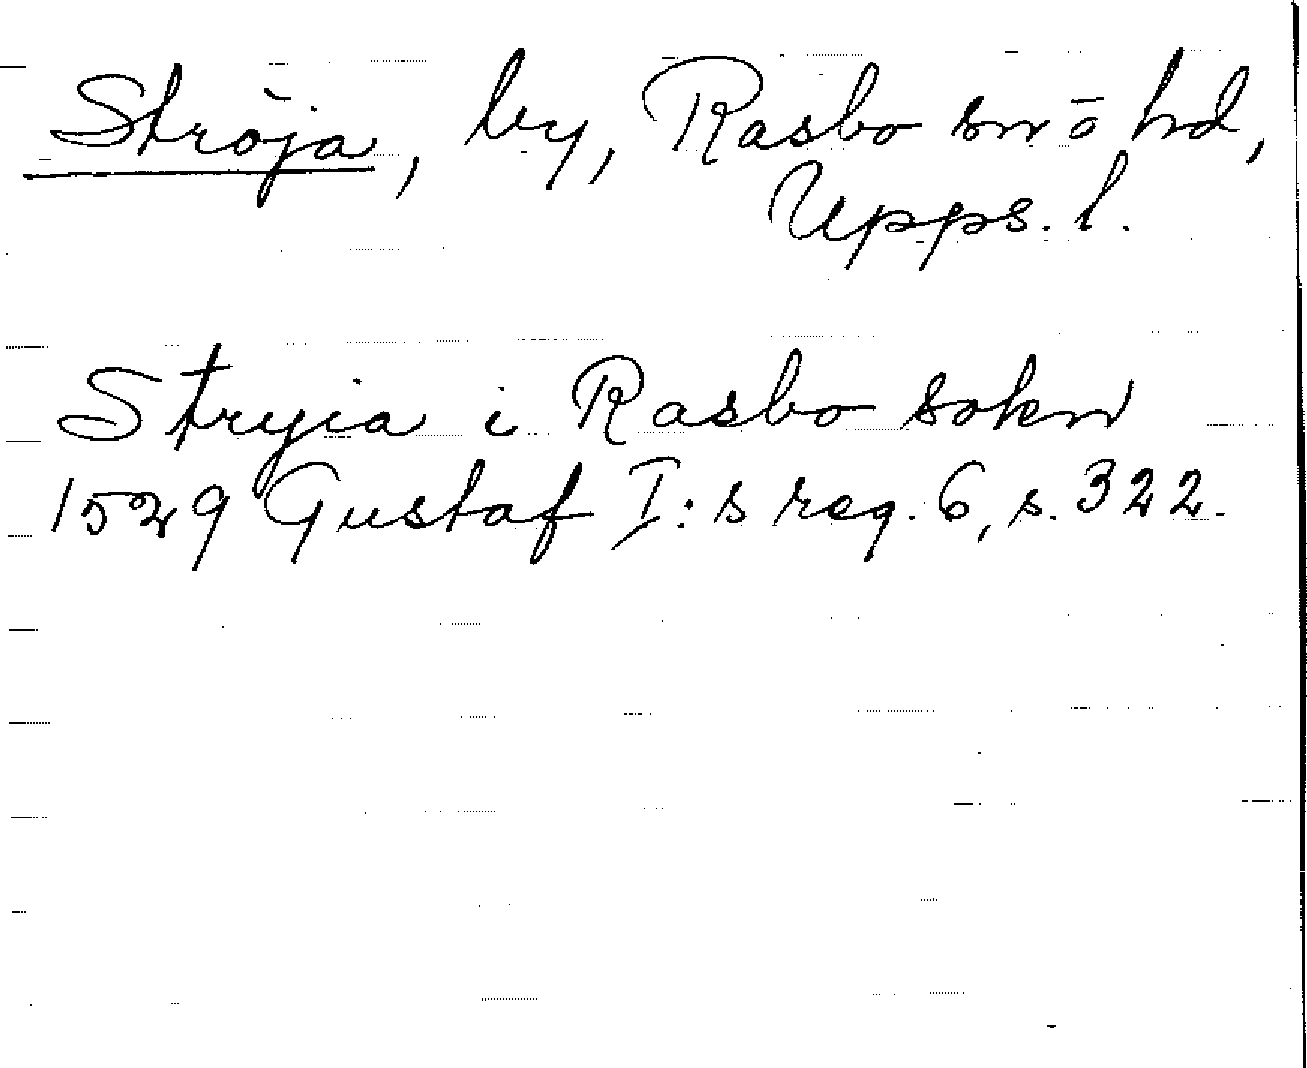 Ströja, by, Rasbo sn ō hd,
Upps. l.
Stryia i Rasbo sokn
1529 Gustaf I:s reg. 6, s. 322.